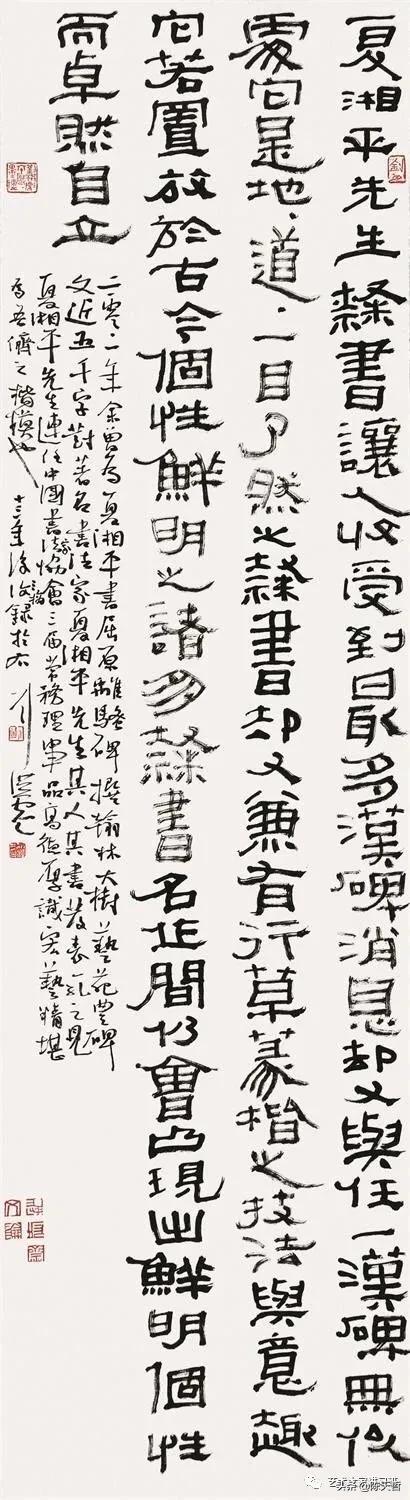 夏湘平先生隸書讓人收受到最多漢碑消息却又與任一漢碑無似
處它是地、道、一目了然之隸書却又兼有行草篆楷之技法與意趣
它若置放於古今個性鮮明之諸多隸書名作間仍會凸現出鮮明個性
而卓然自立
年余曾為夏湘平書屈原離騷碑撰翰林大樹藝苑豐碑
文近五千字對著名書法家夏湘平先生其人其書發表一己之見
夏湘平先生連任中國書法家協會三屆常務理事品高德厚識宏藝精堪
為吾儕之楷模也 十三年後錄於右 劉洪彪